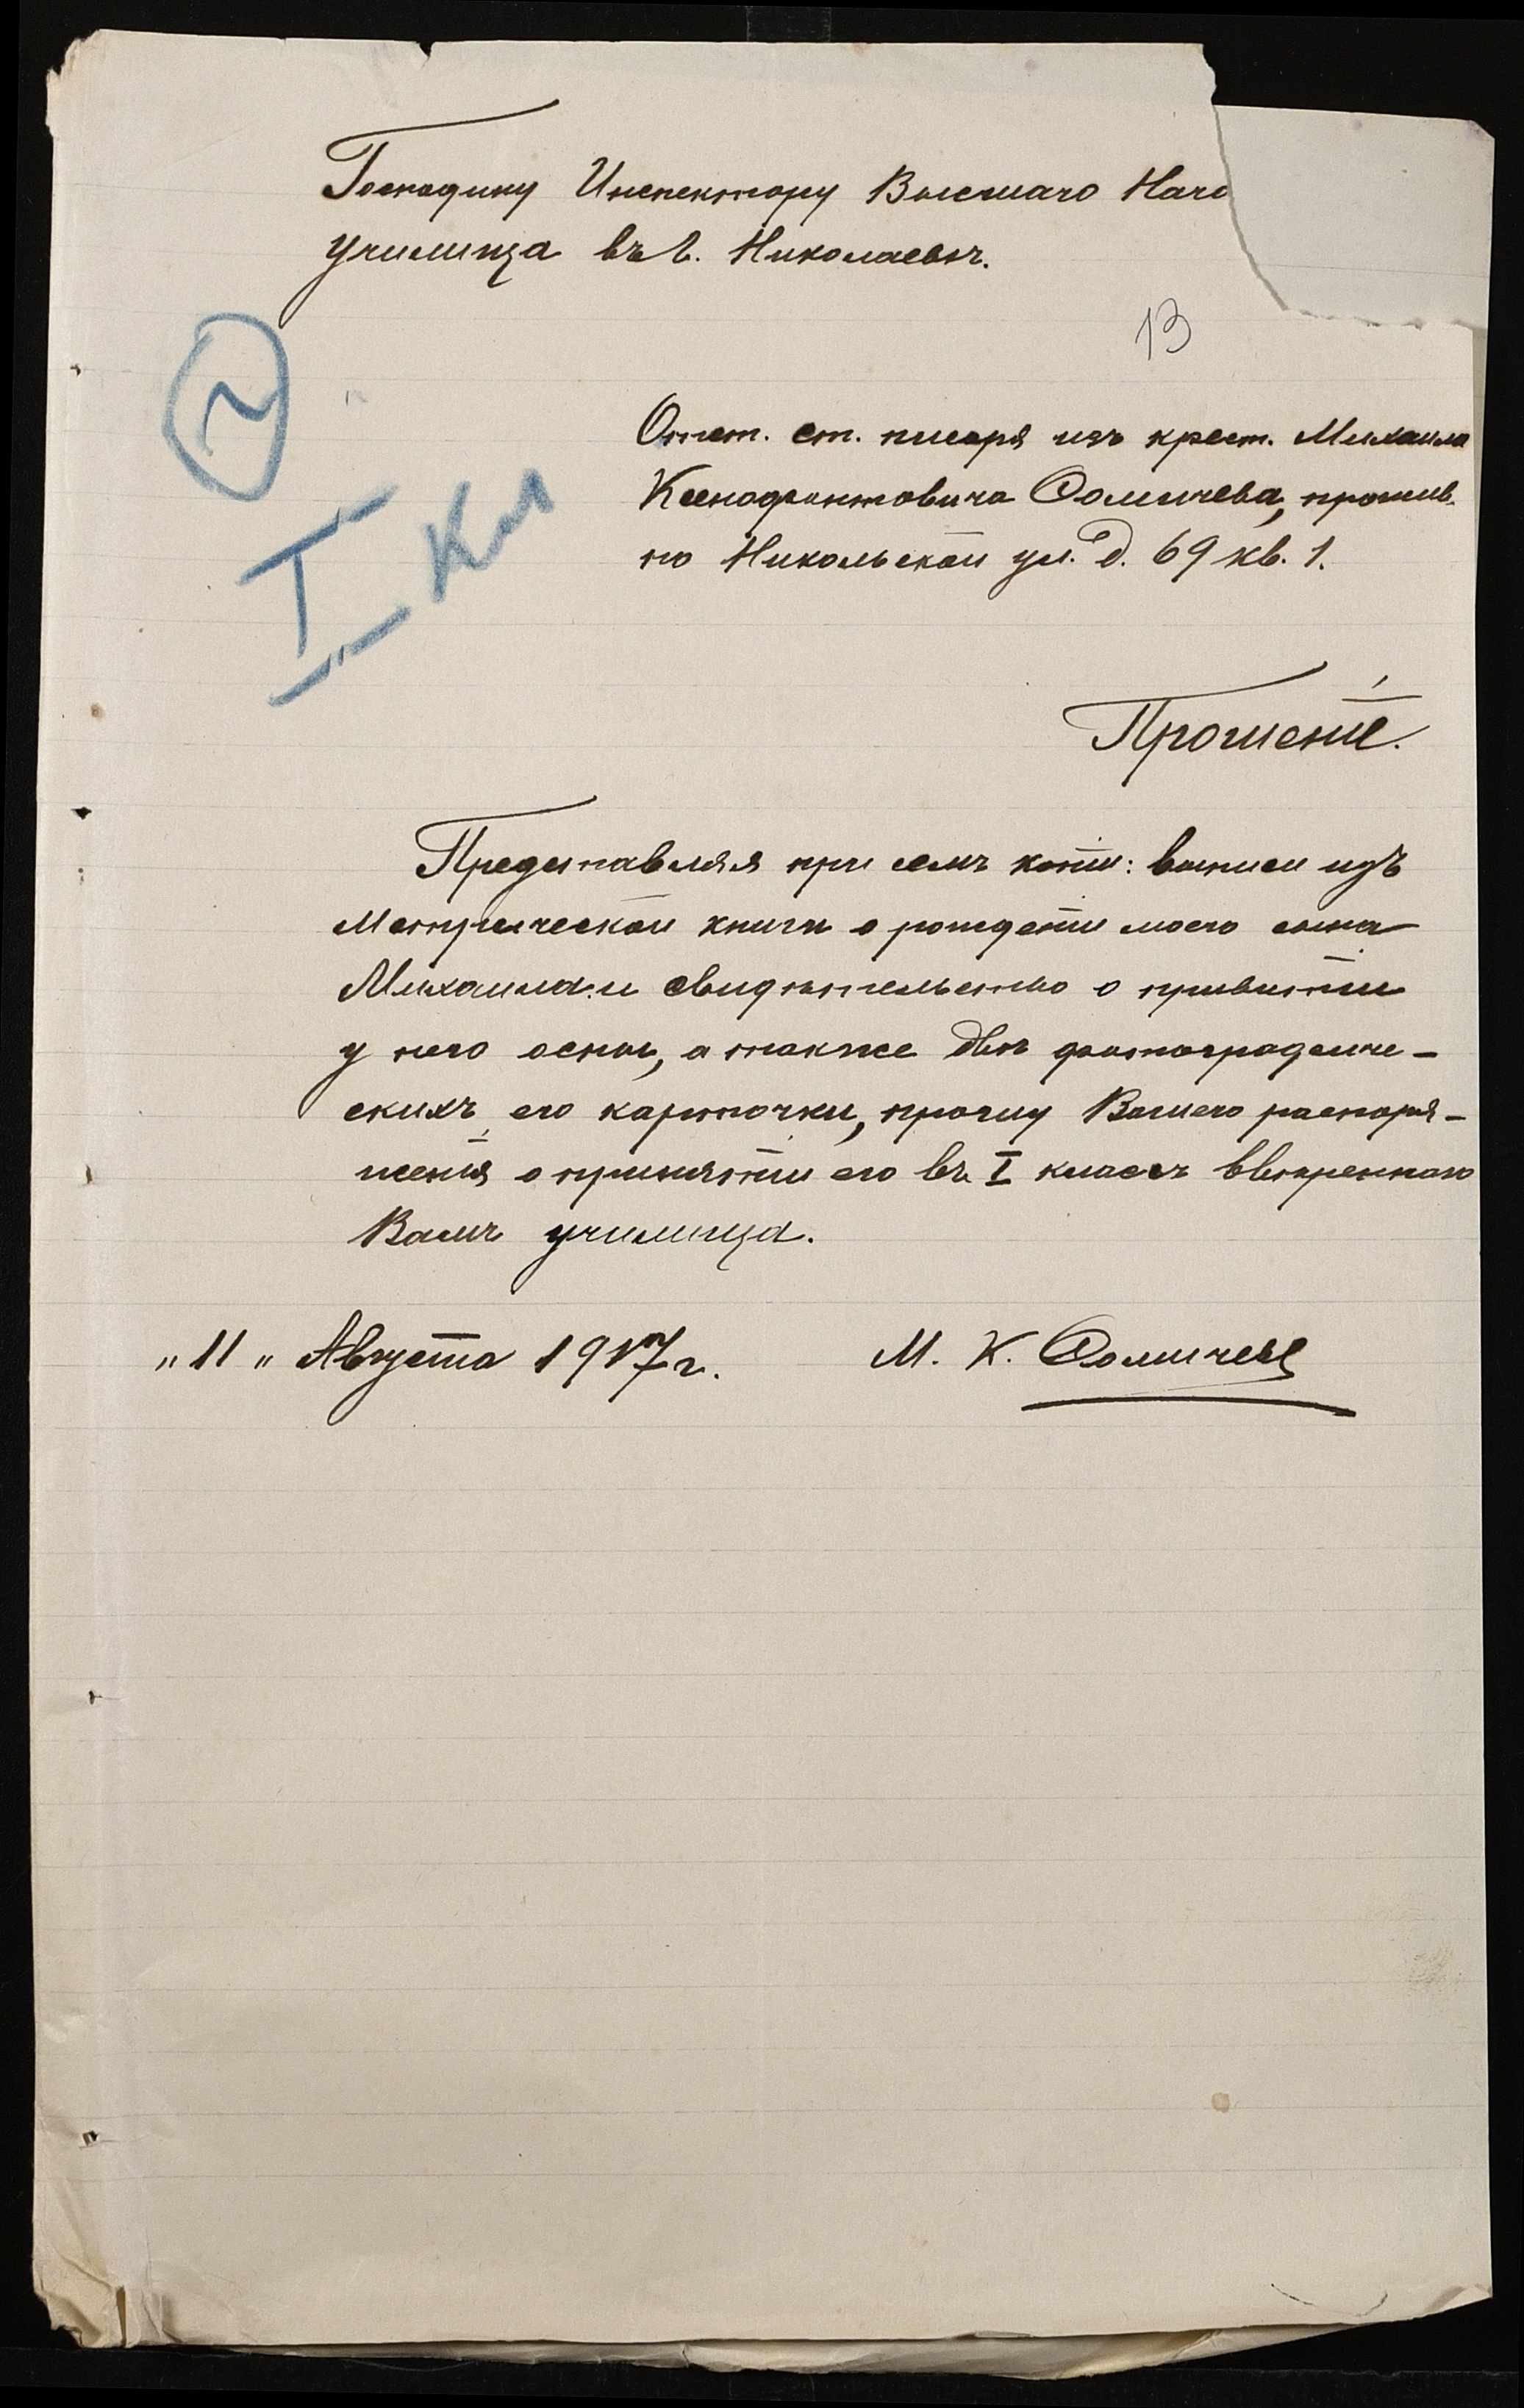 Господину Инспектору Высшаго Нача
училища въ г. Николаевѣ.
13
2
I Кл
Отст. ст. писаря изъ крест. Михаила
Ксенофонтовича Фомичева, прожив.
по Никольской ул. д. 69 кв. 1.
Прошеніе.
Представляя при семъ копіи: выписи изъ
Метрической книги о рожденіи моего сына
Михаила и свидѣтельство о привитіи
у него оспы, а также двѣ фотографиче-
скихъ его карточки, прошу Вашего распоря-
женія о принятіи его въ I классъ ввѣреннаго
Вамъ училища.
„11„ Августа 1917 г. М. К. Фомичевъ